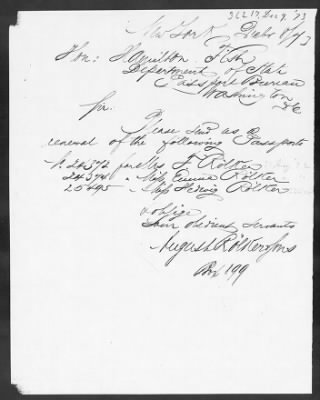 New York Decbr 8/73
Hon: Hamilton Fish
Department of State
Passport Bureau
Washington
DC
Sir.
Please send us a
renewal of the following Passports
24372 for Mrs F Rölker
24374 " Miss Emma Rölker
25495 " Miss Hedwig Rölker
oblige
Your obedient servants
August Rölker & Sons
Box 199